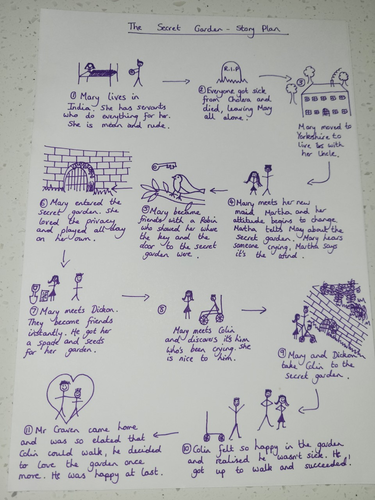 The Secret Garden - Story Plan
① Mary lives in
India. She has servants
who do everything for her.
She is mean and rude.
R.I.P
② Everyone got sick
from Cholera and
died, leaving Mary
all alone.
③
Mary moved to
Yorkshire to
live with
her Uncle.
④ Mary meets her new
maid Martha and her
attitude begins to change.
Martha tells Mary about the
secret garden. Mary hears
someone crying, Martha says
it's the wind.
⑤ Mary became
friends with a Robin
who showed her where
the key and the
door to the secret
garden were.
⑥ Mary entered the
secret garden. She
loved the privacy
and played all day
on her own.
⑦ Mary meets Dickon.
They become friends
instantly. He got her
a spade and seeds
for her garden.
⑧
Mary meets Colin
and discovers it's him
who's been crying. She
is nice to him.
⑨ Mary and Dickon
take Colin to the
secret garden.
⑩ Colin felt so happy in the garden
and realised he wasn't sick. He
got up to walk and succeeded!
⑪ Mr Craven came home
and was so elated that
Colin could walk, he decided
to love the garden once
more. He was happy at last.